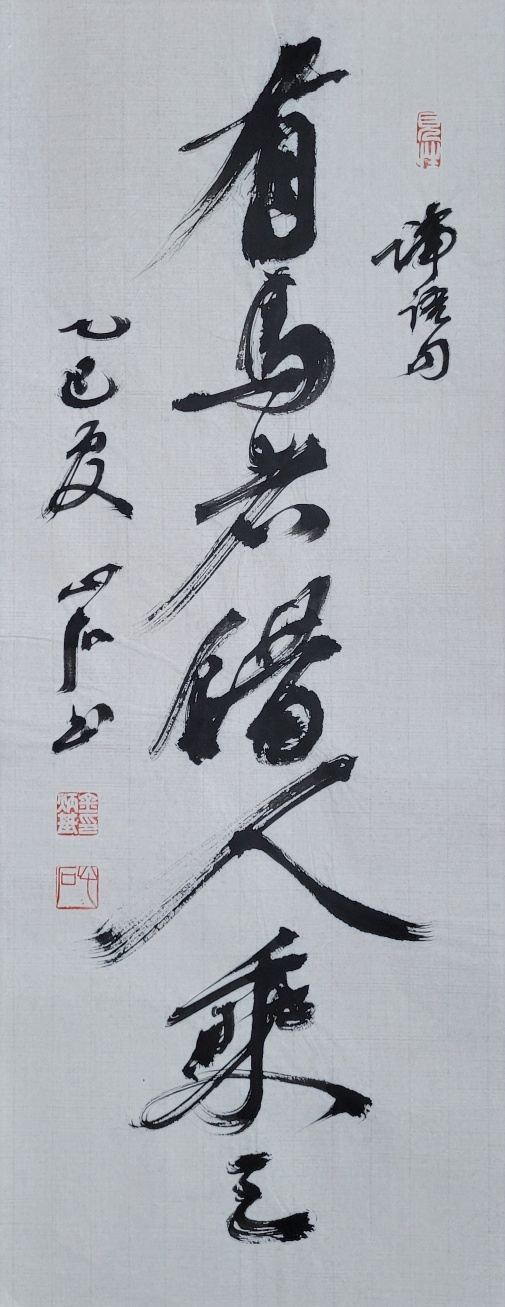 論語句
有馬者借人乘之
乙巳夏 心石書